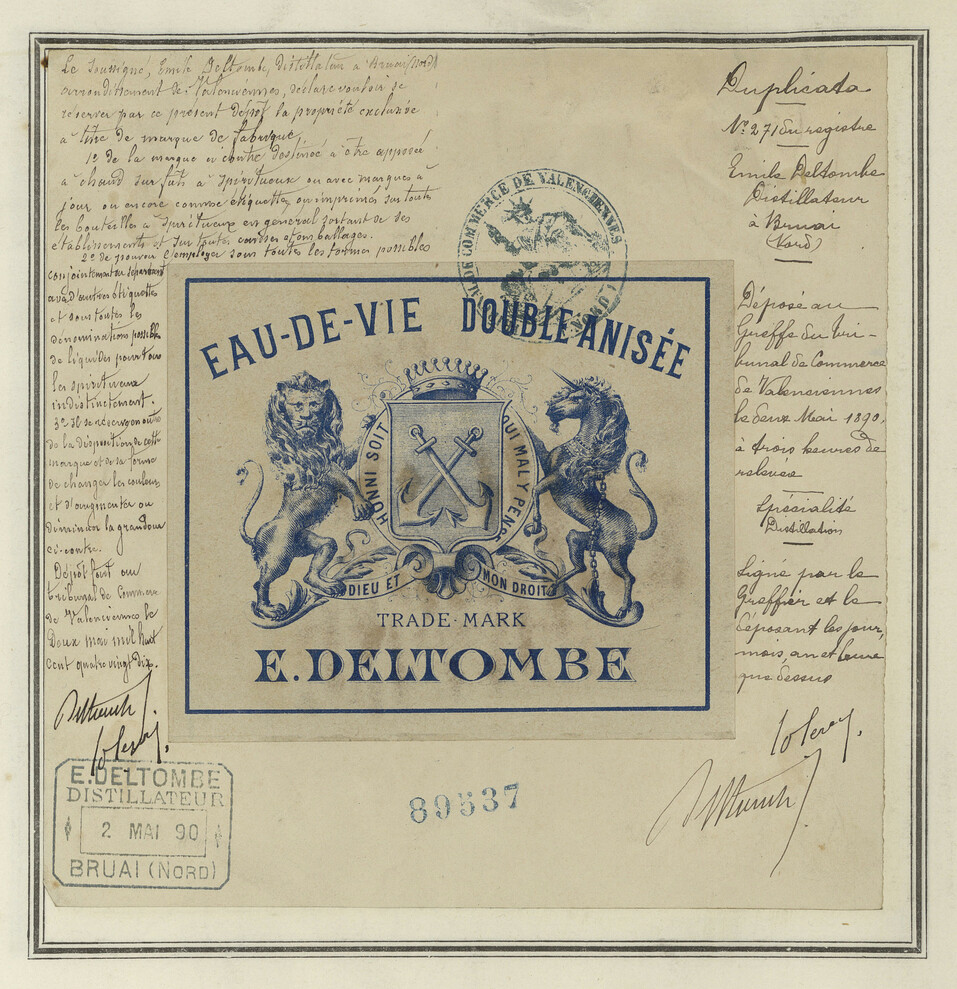 Le soussigné, Emile Deltombe, distillateur à Bruai (Nord)
arrondissement de Valenciennes, déclare vouloir se
réserver par ce présent dépôt la propriété exclusive
à titre de marque de fabrique,
1º de la marque ci contre destinée à être apposée
à chaud sur fûts à spiritueux ou avec marques à
jour ou encore comme étiquettes ou imprimés sur toutes
les bouteilles à spiritueux en général sortant de ses
établissements et sur toutes caisses et emballages.
2º de pouvoir l'employer sous toutes les formes possibles
conjointement ou séparément
avec d'autres étiquettes
et sous toutes les
dénominations possibles
de liquides pour tous
les spiritueux
indistinctement.
3º Il se réserve en outre
de la disposition de cette
marque et de sa forme
de changer les couleurs
et d'augmenter ou
diminuer la grandeur
ci-contre.
Dépôt fait au
tribunal de Commerce
de Valenciennes le
Deux mai mil huit
cent quatre vingt dix.
Duplicata
Nº 271 du registre
Emile Deltombe
Distillateur
à Bruai
(Nord)
Déposé au
Greffe du Tri-
bunal de Commerce
de Valenciennes
le deux Mai 1890,
à trois heures de
relevée
Spécialité
Distillation
Signé par le
Greffier et le
déposant les jour,
mois, an et heure
que dessus
DE COMMERCE DE VALENCIENNES
(NORD)
EAU-DE-VIE DOUBLE ANISÉE
HONNI SOIT QUI MAL Y PENS
DIEU ET MON DROIT
TRADE-MARK
E. DELTOMBE
E. DELTOMBE
DISTILLATEUR
2 MAI 90
BRUAI (NORD)
89537